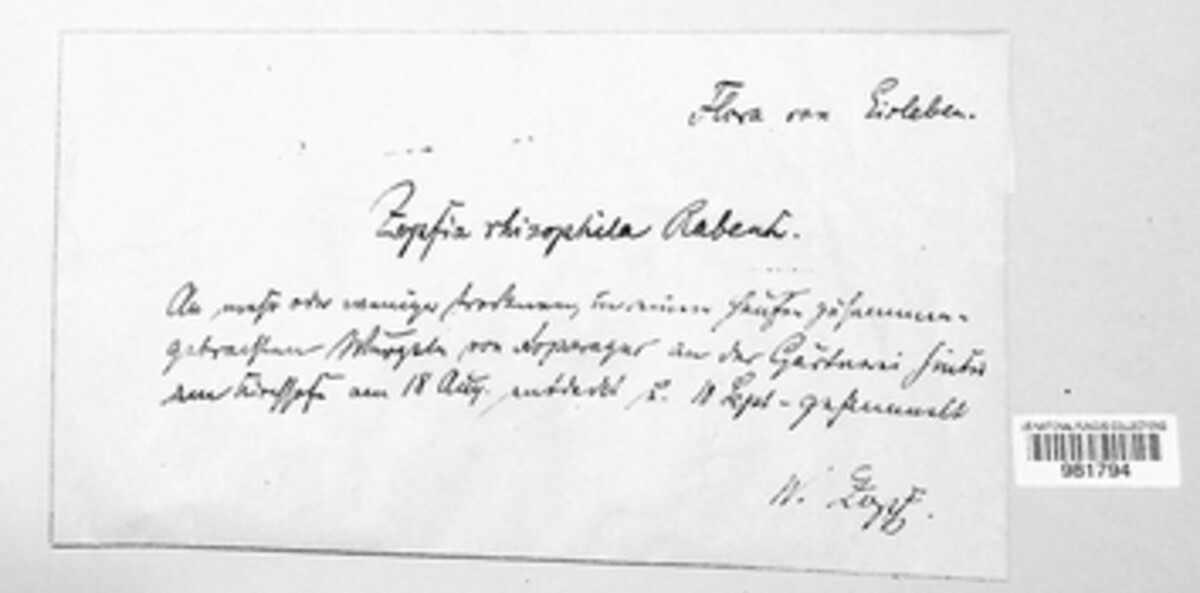 Flora von Eisleben.
Zopfia rhizophila Rabenh.
An mehr oder weniger trocknen, in einen Haufen zusammen-
gebrachten Wurzeln von Asparagus an der Gärtnerei hinter
dem Kirchhofe am 18 Aug. entdeckt u. Sept - gesammelt
W. Zopf.
US NATIONAL FUNGUS COLLECTIONS
981794